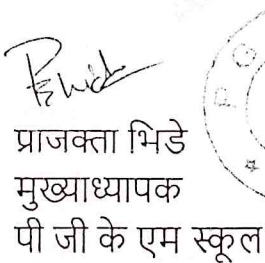 प्राजक्ता भिडे
मुख्याध्यापक
पी जी के एम स्कूल